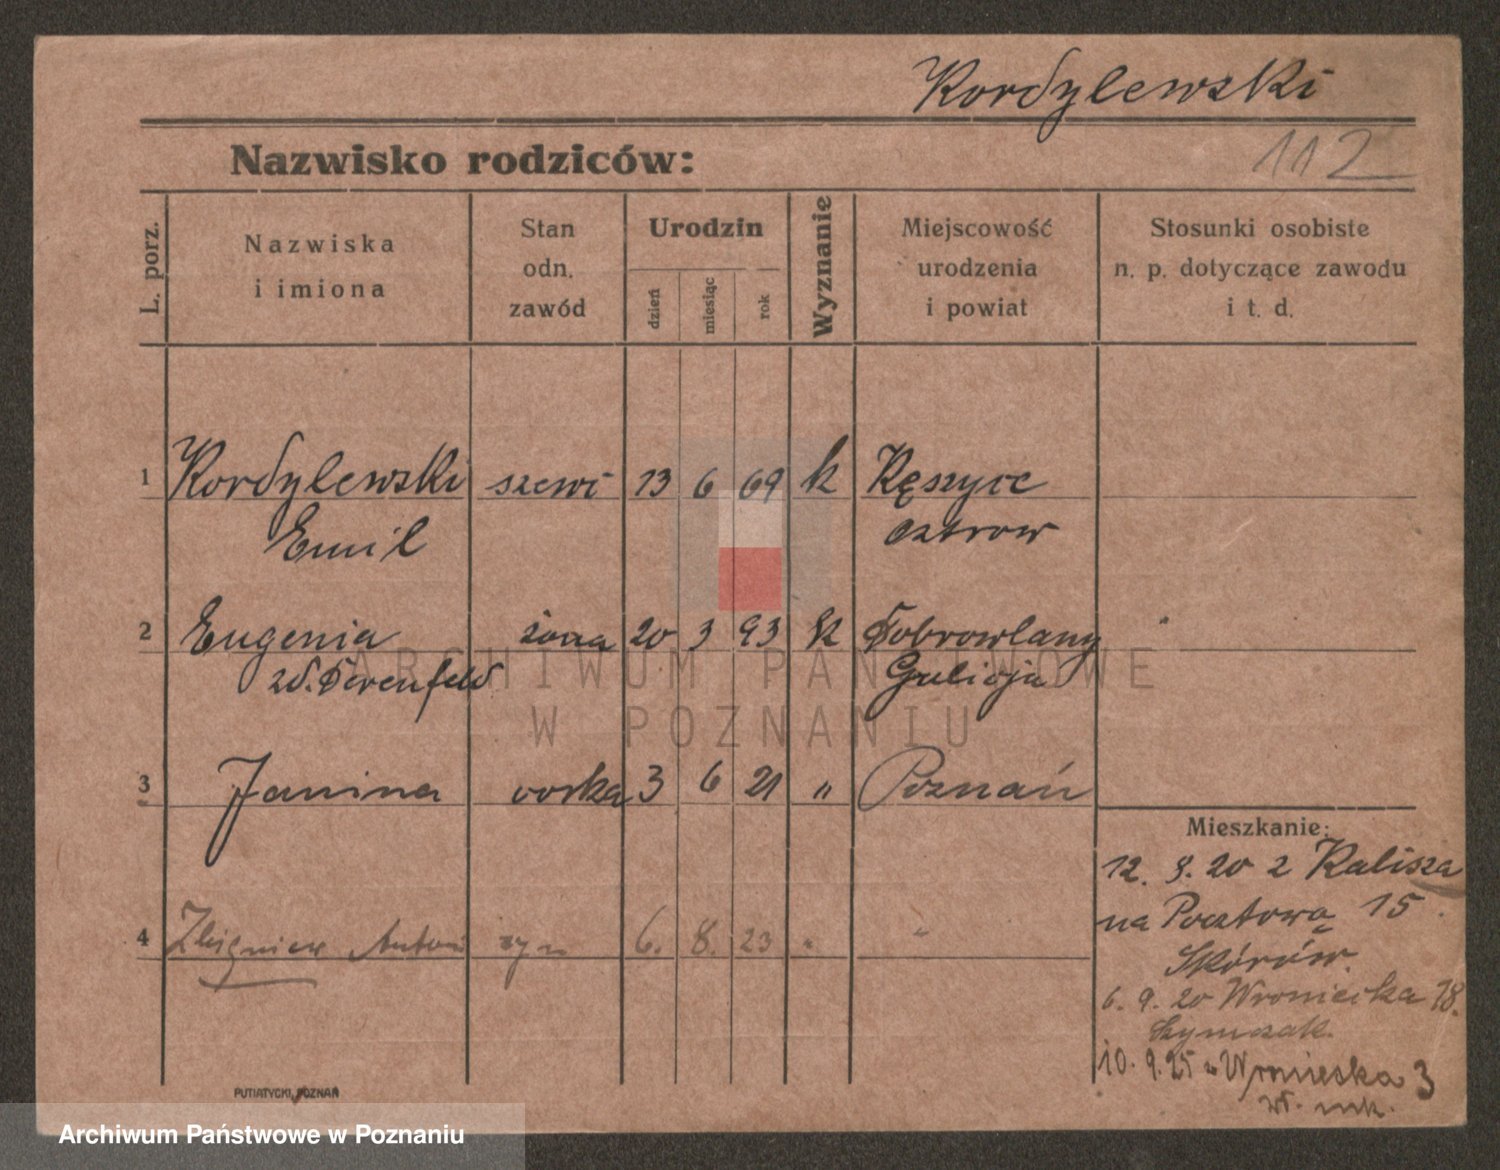 Kordylewski
112
Nazwisko rodziców:
L. porz.
Nazwiska
i imiona
Stan
odn.
zawód
Urodzin
dzień
miesiąc
rok
Wyznanie
Miejscowość
urodzenia
i powiat
Stosunki osobiste
n. p. dotyczące zawodu
i t. d.
1 Kordylewski szewc 13 6 69 k
Emil Ostrow
2 Eugenia żona 20 3 93 k Dobrowlany
zd. Derenfeld Galicja
3 Janina corka 3 6 21 " Poznań
4 Zbigniew Antoni syn 6. 8. 23 " "
Mieszkanie:
12. 8. 20 z Kalisza
na Pocztową 15.
6. 9. 20 Wroniecka 18.
Szymczak.
10. 9. 25 Wroniecka 3
PUTIATYCKI, POZNAŃ
ARCHIWUM PAŃSTWOWE
W POZNANIU
Archiwum Państwowe w Poznaniu